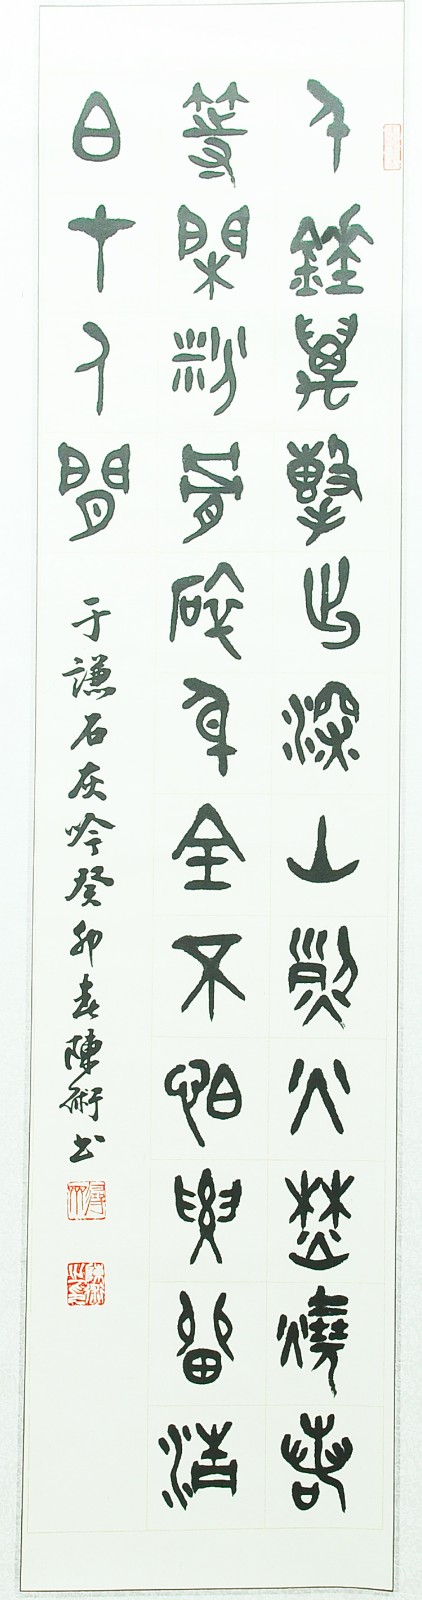 千錘萬擊出深山烈火焚燒若
等閑粉骨碎身全不怕要留清
白在人間
于謙石灰吟癸卯春陳術书